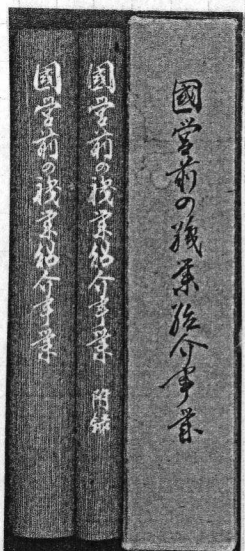 國営前の職業紹介事業
國営前の職業紹介事業 附録
國営前の職業紹介事業